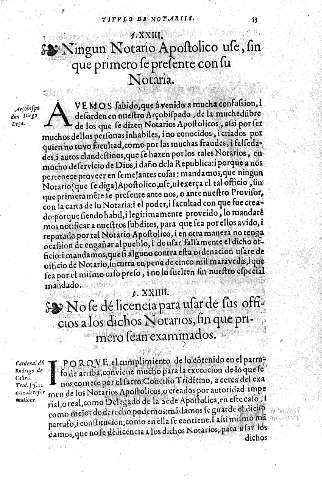 TITULO DE NOTARIIS. 33
§. XXIII.
Ningun Notario Apostolico use, sin
que primero se presente con su
Notaria.
Arçobispo
don Diego
Deça.
AVEMOS sabido, que á venido a mucha confusion, i
desorden en nuestro Arçobispado, de la muchedũbre
de los que se dizen Notarios Apostolicos, assi por ser
muchos dellos personas inhabiles, i no conocidos, i criados por
quien no tuvo facultad, como por las muchas fraudes, i falseda-
des, i autos clandestinos, que se hazen por los tales Notarios, en
mucho deservicio de Dios, i daño de la Republica: i porque a nos
pertenece proveer en semejantes cosas: mandamos, que ningun
Notario (que se diga) Apostolico, use, i exerça el tal officio, sin
que primeramẽte se presente ante nos, o ante nuestro Provisor,
con la carta de su Notaria: i el poder, i facultad con que fue crea-
do: porque siendo habil, i legitimamente proveido, lo mandaré
mos notificar a nuestros subditos, para que sea por ellos avido, i
reputado por tal Notario Apostolico, i en otra manera no tenga
ocasion de engañar al pueblo, i de usar falsamente el dicho of-
ficio: i mandamos, que si alguno contra esta ordenacion usare de
officio de Notario, incurra en pena de cinco mil maravedis, i que
sea por el mismo caso preso, i no lo suelten sin nuestro especial
mandado.
§. XXIIII.
No se dé licencia para usar de sus offi-
cios a los dichos Notarios, sin que pri-
mero sean examinados.
Cardenal dõ
Rodrigo de
Castro.
IPORQUE el cumplimiento de lo cõtenido en el parra-
fo de arriba, conviene mucho para la execucion de lo que se
nos comete por el sacro Concilio Tridẽtino, acerca del exa
men de los Notarios Apostolicos, o creados por autoridad impe
rial, o real, como Delegado de la Sede Apostolica, en este caso, i
como mejor de derecho podemos: mãdamos se guarde el dicho
parrafo, i constitucion, como en ella se contiene. I assi mismo mã
damos, que no se dé licencia a los dichos Notarios, para usar los
dichos